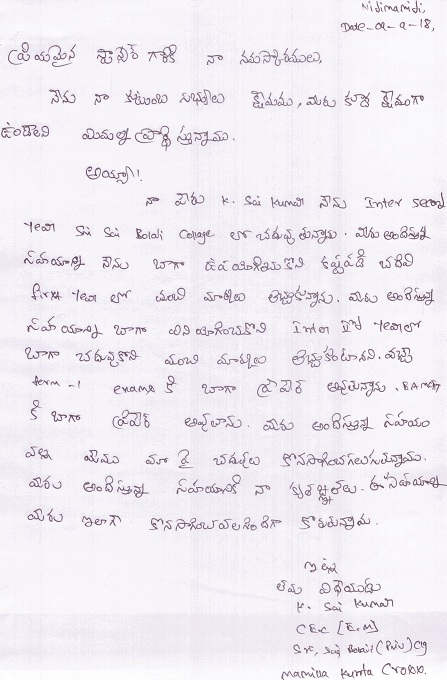 Nidimamidi,
Date-09-9-18,
ప్రియమైన స్పాన్సర్ గారికి నా నమస్కారములు,
నేను నా కుటుంబ సభ్యులు క్షేమము, మీరు కూడా క్షేమంగా
ఉండాలని మిమ్మల్ని ప్రార్థిస్తున్నాము.
అయ్యా!
నా పేరు K. Sai Kumar నేను Inter second
Year Sri Sai Balaji College లో చదువుతున్నాను. మీరు అందిస్తున్న
సహయాన్ని నేను బాగా ఉపయోగించుకొని కష్టపడి చదివి
first Year లో మంచి మార్కులు తెచ్చుకున్నాను. మీరు అందిస్తున్న
సహయాన్ని బాగా వినియోగించుకొని Inter IInd Year లో
బాగా చదువుకొని మంచి మార్కులు తెచ్చుకుంటానని. వచ్చే
term-1 exams కి బాగా ప్రిపేర్ అవుతున్నాను. EAMCET
కి బాగా ప్రిపేర్ అవుతాను. మీరు అందిస్తున్న సహయం
వల్ల మేము మా పై చదువులు కొనసాగించగలుగుతున్నాము.
మీరు అందిస్తున్న సహయానికి నా కృతజ్ఞతలు. ఈ సహయాన్ని
మీరు ఇలాగే కొనసాగించవలసిందిగా కోరుతున్నాను.
ఇట్లు
తమ విధేయుడు
K. Sai Kumar
CEC [E.M]
Sri, Sai Balaji (Pvt) Clg
Mamilla Kunta Cross.